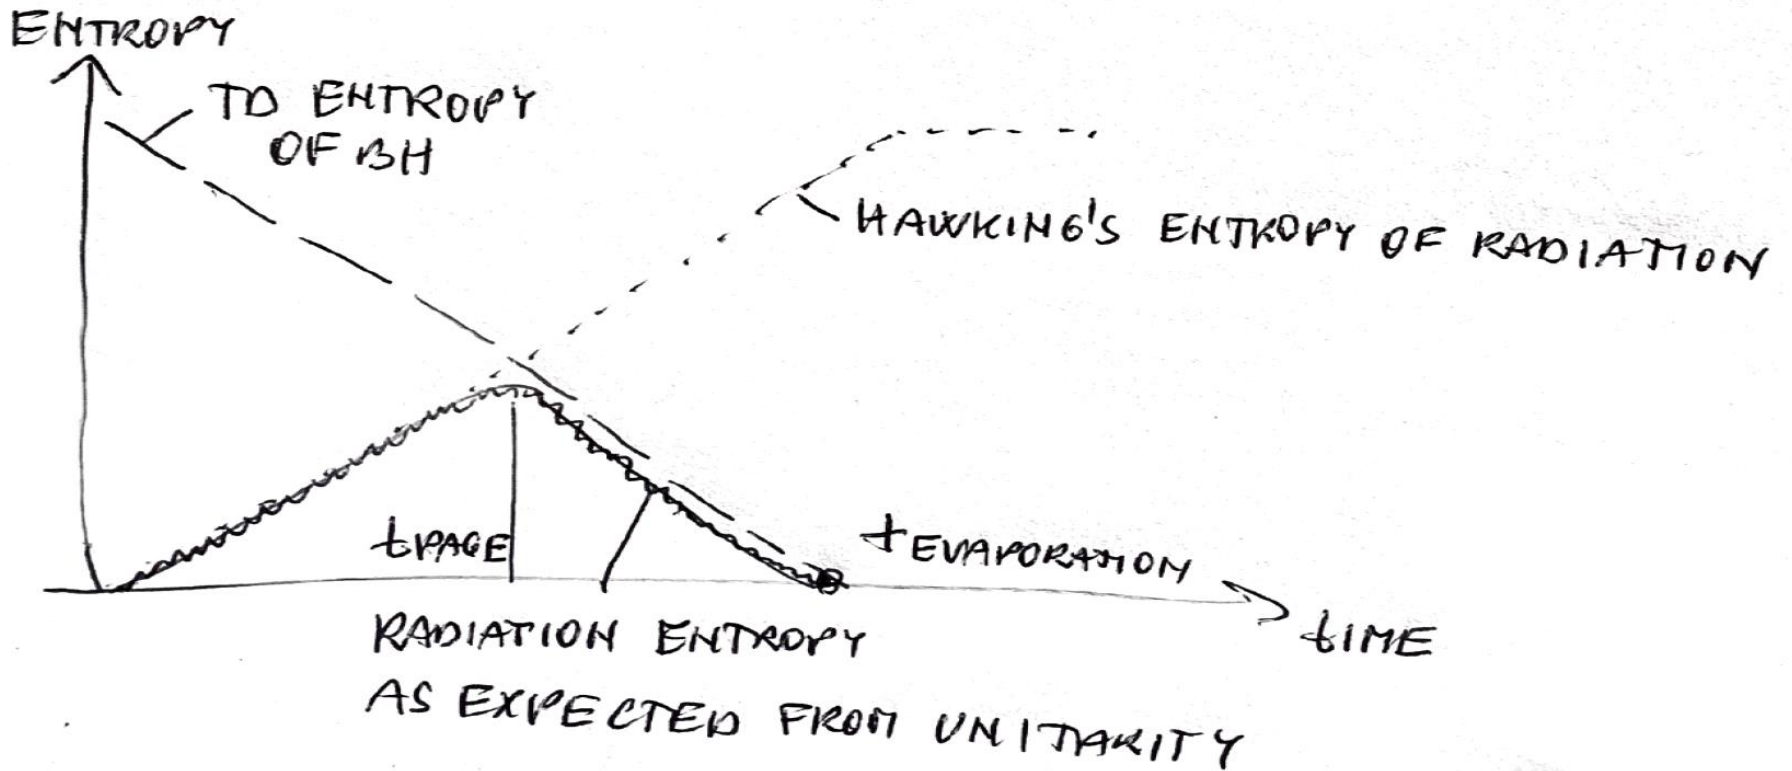 ENTROPY
TD ENTROPY
OF BH
HAWKING'S ENTROPY OF RADIATION
tPAGE
tEVAPORATION
tIME
RADIATION ENTROPY
AS EXPECTED FROM UNITARITY